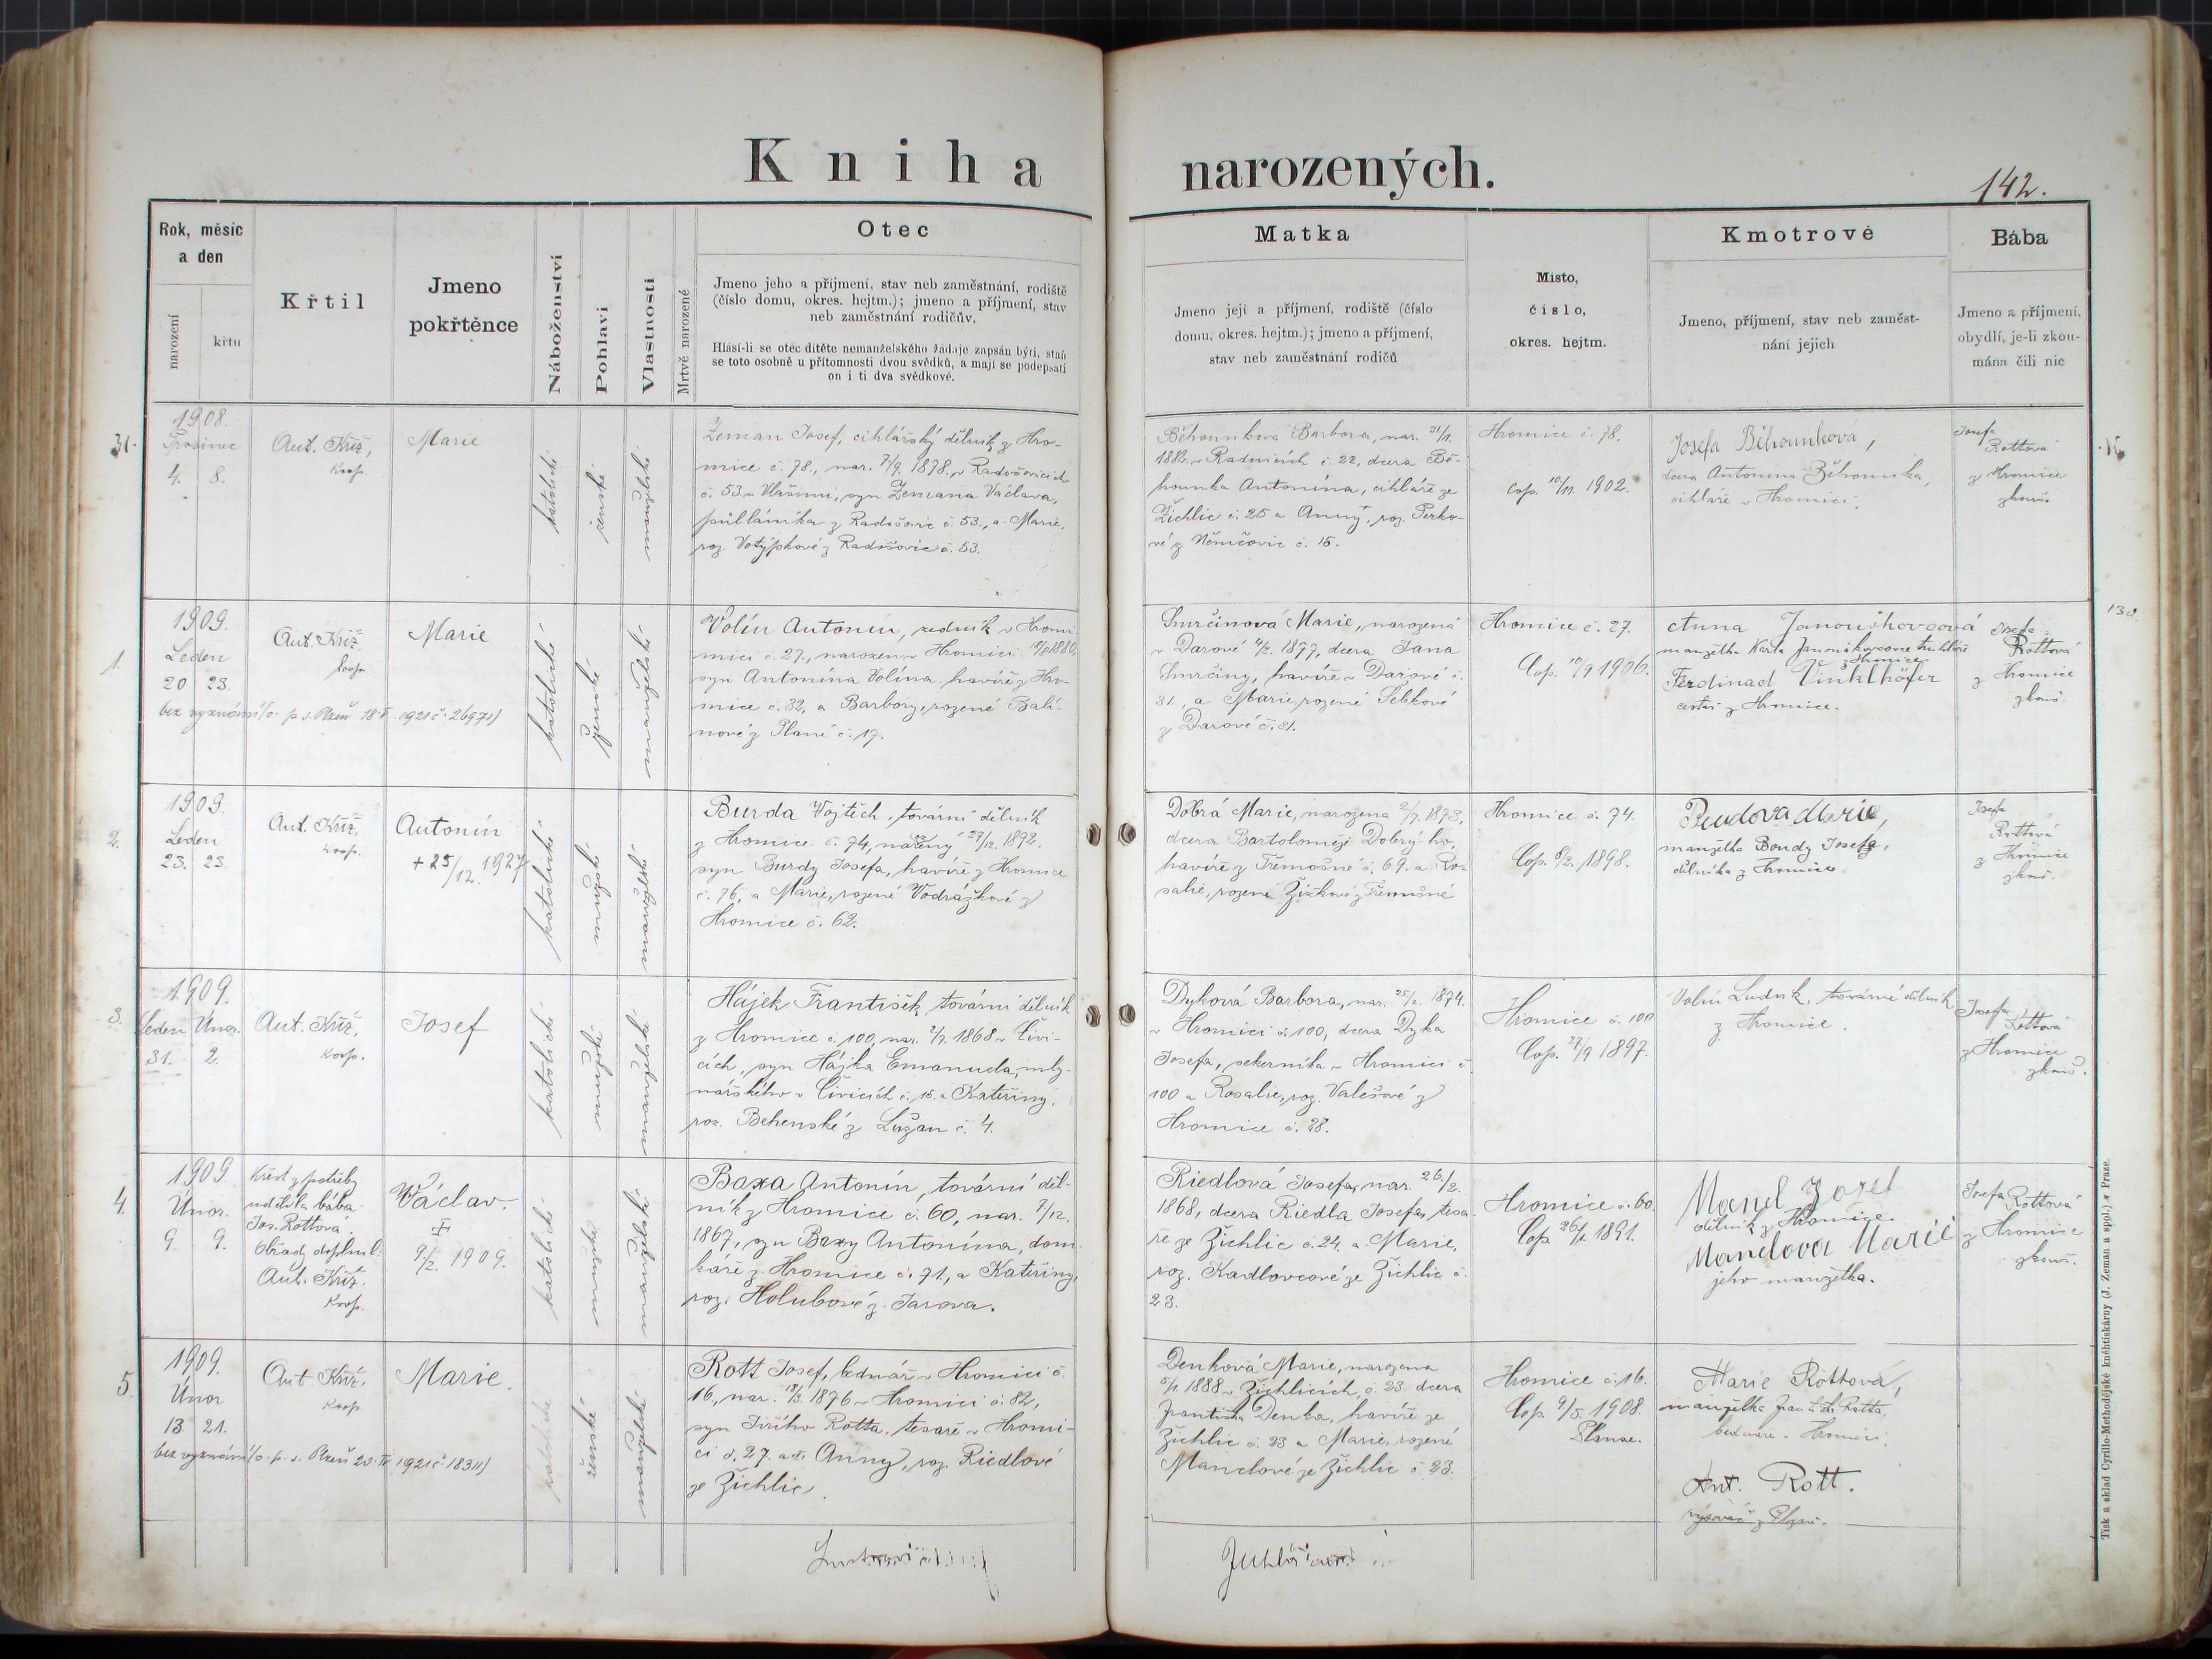 Kniha narozených.
142.
Rok, měsíc
a den
narození
křtu
Křtil
Jmeno
pokřtěnce
Náboženství
Pohlaví
Vlastnosti
Mrtvě narozené
Otec
Jmeno jeho a příjmení, stav neb zaměstnání, rodiště
(číslo domu, okres. hejtm.); jmeno a příjmení, stav
neb zaměstnání rodičův.
Hlásí-li se otec dítěte nemanželského žádaje zapsán býti, staň
se toto osobně u přítomnosti dvou svědků, a mají se podepsati
on i ti dva svědkové.
Matka
Jmeno její a příjmení, rodiště (číslo
domu, okres. hejtm.); jmeno a příjmení,
stav neb zaměstnání rodičů
Místo,
číslo,
okres. hejtm.
Kmotrové
Jmeno, příjmení, stav neb zaměst-
nání jejich
Bába
Jmeno a příjmení,
obydlí, je-li zkou-
mána čili nic
31.
1908.
Prosinec
4. 8.
Ant. Kříž,
Koop.
Marie
katolické
ženské
manželské
Zeman Josef, cihlářský dělník z Hro-
mice č. 78., nar. 7/9. 1878. v Radošovicích
č. 53 u Vlašimi, syn Zemana Václava,
půlláníka z Radošovic č. 53., a Marie,
roz. Votýpkové z Radošovic č. 53.
Běhounková Barbora, nar. 31/1.
1882. v Radnicích č. 22, dcera Bě-
hounka Antonína, cihláře ze
Žichlic č. 25 a Anny, roz. Perko-
vé z Němčovic č. 15.
Hromice č. 78.
Cop. 10/11. 1902.
Josefa Běhounková,
dcera Antonína Běhounka,
cihláře v Hromici.
Josefa
Rottová
z Hromice
zkouš.
1.
1909.
Leden
20 23.
bez vyznání (o. p. s. Plzeň 18. 1921 č. 26971)
Ant. Kříž
Koop.
Marie
katolické
ženské
manželské
Volín Antonín, zedník v Hromi-
mici č. 27., narozen v Hromici 1880,
syn Antonína Volína havíře z Hro-
mice č. 82, a Barbory, rozené Balí-
nové z Planě č. 17.
Smrčinová Marie, narozená
v Darové 4/2. 1877, dcera Jana
Smrčiny, havíře v Darové č.
81., a Marie, rozené Sebkové
z Darové č. 81.
Hromice č. 27.
Cop. 10/9 1906.
Anna Janouškovcová
manželka Karla Janouškovce truhláře
z Hromice
Ferdinad Vinklhöfer
cestář z Hromice.
Josefa
Rottová
z Hromice
zkouš.
130.
2.
1909.
Leden
23. 23.
Ant. Kříž,
Koop.
Antonín
+ 25/12. 1927
katolické
mužské
manželské
Burda Vojtěch, tovární dělník
z Hromice č. 74, 27/12. 1872,
syn Burdy Josefa, havíře z Hromice
č. 76, a Marie, rozené Vodrážkové z
Hromice č. 62.
Dobrá Marie, narozena 2/7. 1873,
dcera Bartoloměje Dobrý-ho,
havíře z Třemošné č. 69. a Ro-
salie, rozené Žižkové z Třemošné
Hromice č. 74.
Cop. 8/2. 1898.
Marie,
manželka Josefa,
dělníka z Hromice.
Josefa
Rottová
z Hromice
zkouš.
3.
1909.
Leden Únor.
31. 2.
Ant. Kříž,
Koop.
Josef
katolické
mužské
manželské
Hájek František, tovární dělník
z Hromice č. 100, nar. 2/7. 1868 v Čivi-
cích, syn Hájka Emanuela, mly-
nářského v Čivicích č. 15. a Kateřiny,
roz. Behenské z Lažan č. 4.
Dyková Barbora, nar. 25/2. 1874.
v Hromici č. 100, dcera Dyka
Josefa, pekerníka v Hromici č.
100 a Rosalie, roz. Valešové z
Hromice č. 28.
Hromice č. 100
Cop. 27/9 1897.
Volín Ludvík, tovární dělník
z Hromice.
Josefa
Rottová
z Hromice
zkouš.
4.
1909.
Únor.
9. 9.
Křest z potřeby
udělila bába
Jos. Rottová.
Obřady doplnil:
Ant. Kříž.
Koop.
Václav.
9/2. 1909.
katolické
mužský
manželské
Baxa Antonín, tovární děl-
ník z Hromice č. 60, nar. 7/12.
1867, syn Baxy Antonína, dom-
káře z Hromice č. 71, a Kateřiny,
roz. Holubové z Jarova.
Riedlová Josefa, nar. 26/2.
1868, dcera Riedla Josefa, tesa-
ře ze Žichlic č. 24. a Marie,
roz. Kadlovcové ze Žichlic č.
23.
Hromice č. 60.
Cop. 26/1. 1891.
Mandl Jozef
dělník z Hromice.
Mandlova Marie
jeho manželka.
Josefa Rottová
z Hromice
zkouš.
5.
1909.
Únor
13. 21.
bez vyznání (o. p. s. Plzeň 20. 1921 č. 18311)
Ant. Kříž.
Koop.
Marie.
katolické
ženské
manželské
Rott Josef, bednář v Hromici č.
16, nar. 18/3. 1876 v Hromici č. 82,
syn Jiřího Rotta, tesaře v Hromi-
ci č. 27. a Anny, roz. Riedlové
ze Žichlic.
Denková Marie, narozena
5/1. 1888 v Žichlicích, č. 23 dcera
Františka Denka, havíře ze
Žichlic č. 23 a Marie, rozené
Mandlové ze Žichlic č. 23.
Hromice č. 16.
Cop. 9/5. 1908.
Marie Rottová,
manželka Rotta,
bednáře v Hromici.
Ant. Rott.
z Plzně.
Tisk a sklad Cyrillo-Methodějské knihtiskárny (J. Zeman a spol.) v Praze.